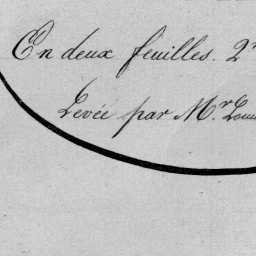 En deux feuilles. 2
Levée par Mr.